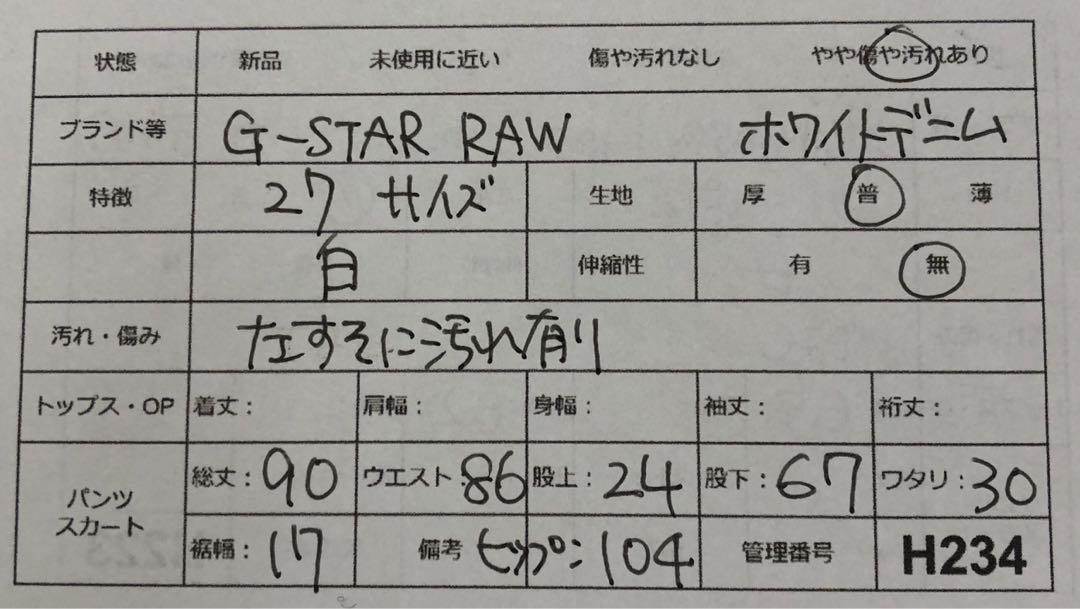 状態 新品 未使用に近い 傷や汚れなし やや傷や汚れあり
ブランド等 G-STAR RAW ホワイトデニム
特徴 27 サイズ 生地 厚 普 薄
白 伸縮性 有 無
汚れ・傷み 左すそに汚れ有り
トップス・OP 着丈： 肩幅： 身幅： 袖丈： 裄丈：
パンツ スカート 総丈：90 ウエスト：86 股上：24 股下：67 ワタリ：30
裾幅：17 備考 ヒップ：104 管理番号 H234